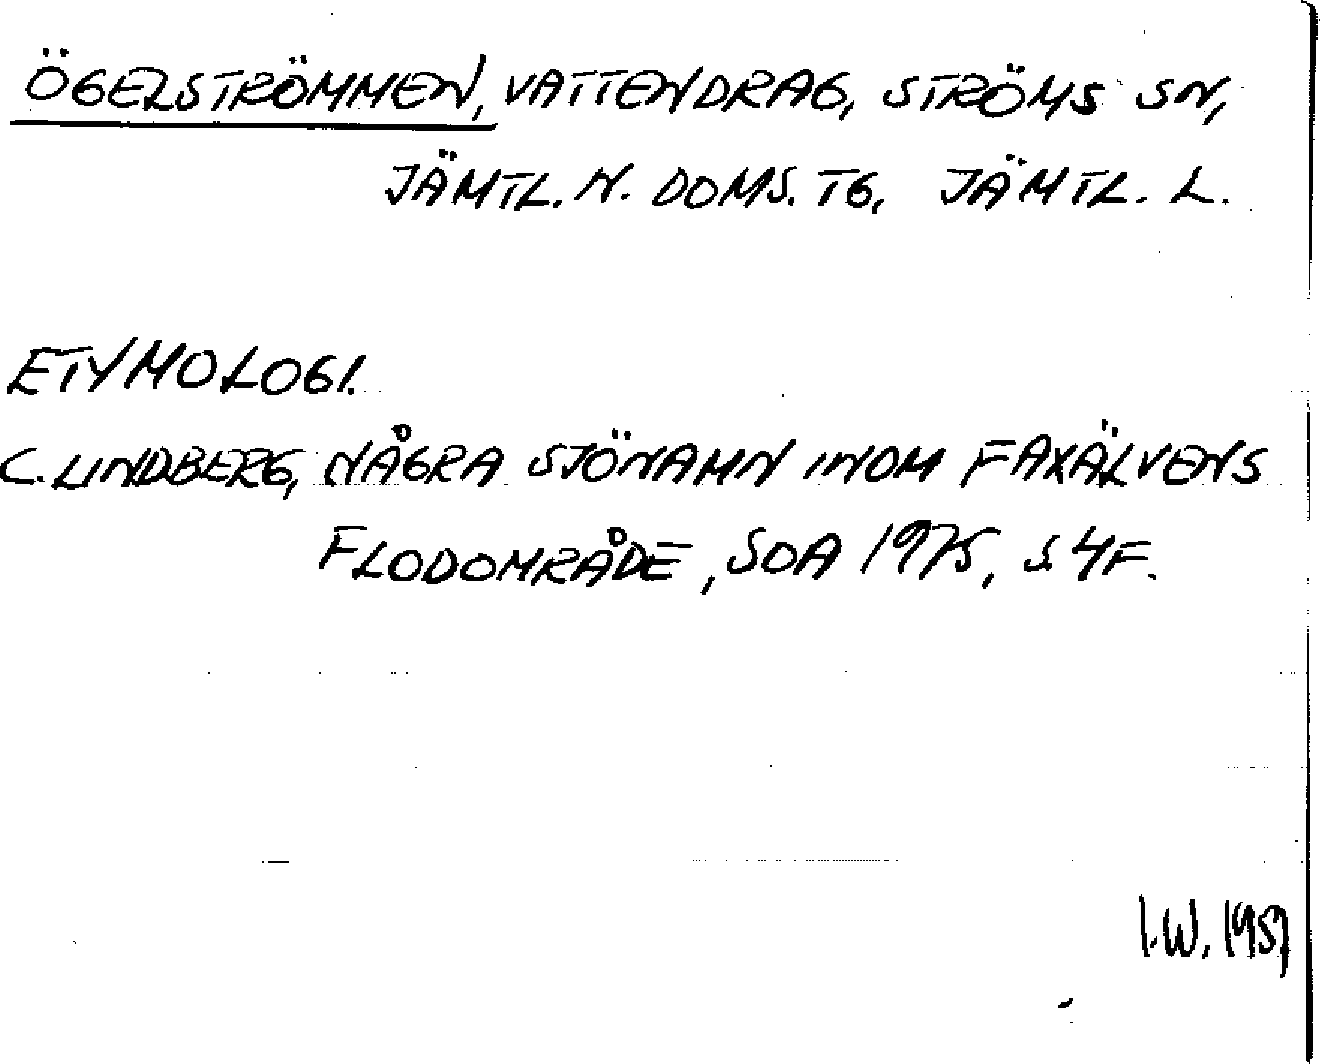 ÖGELSTRÖMMEN, VATTENDRAG, STRÖMS SN,
JÄMTL. N. DOMS. TG, JÄMTL. L.
ETYMOLOGI.
C. LINDBERG, NÅGRA SJÖNAMN INOM FAXÄLVENS
FLODOMRÅDE, SOA 1975, S 4F.
I.W.